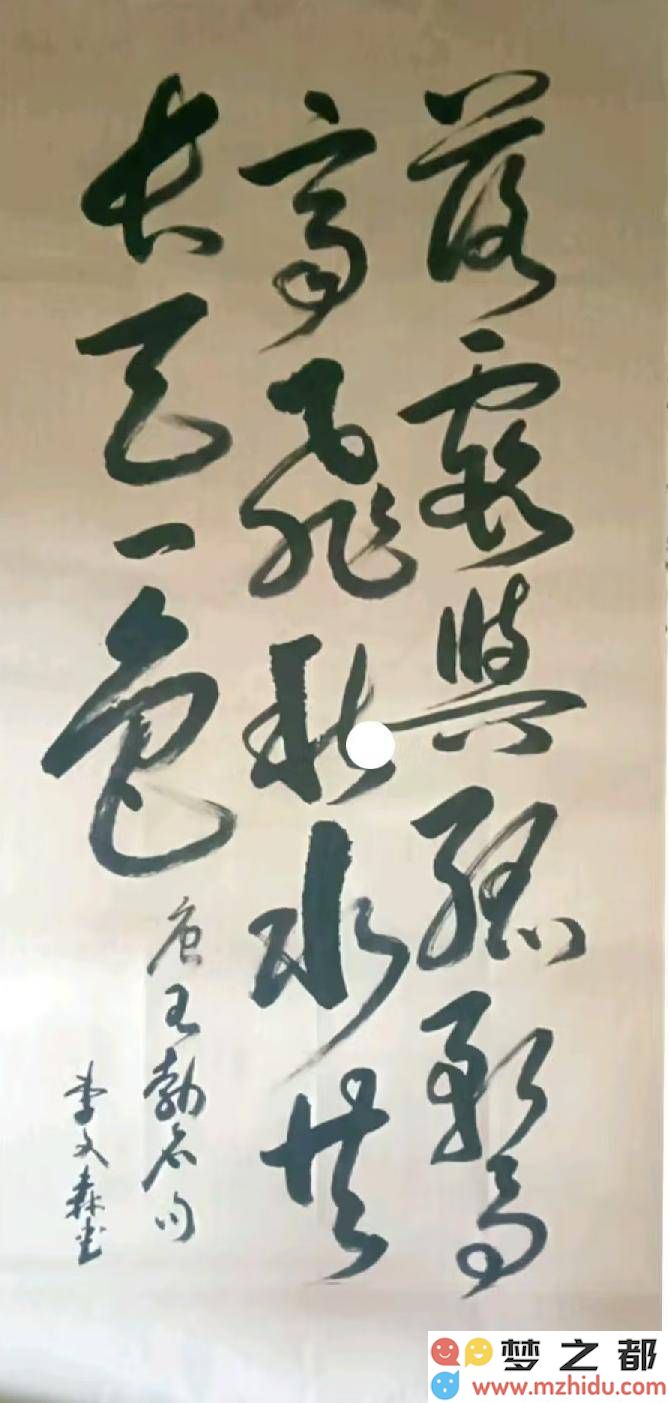 落霞與孤鶩
齊飛秋水共
長天一色
唐王勃名句
李文森书
梦之都
www.mzhidu.com